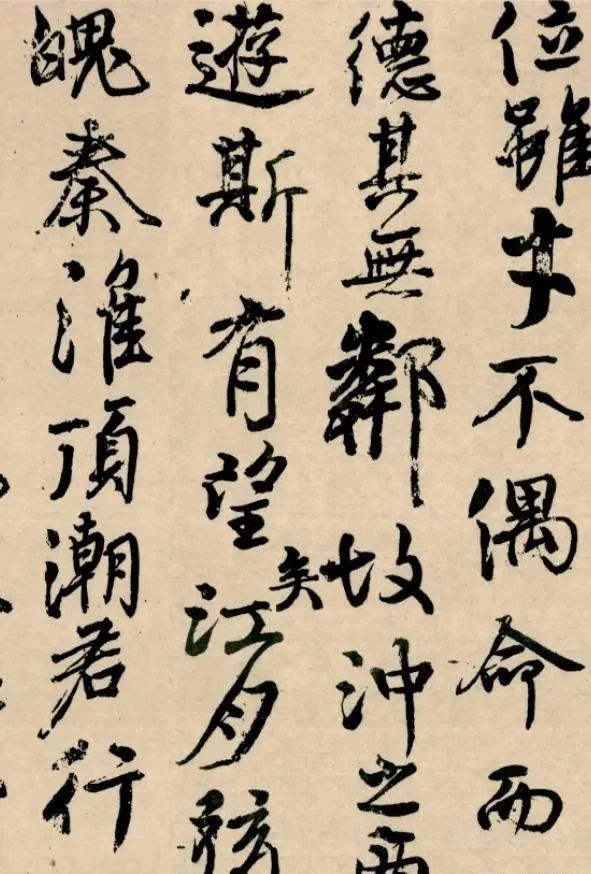 位雖才不偶命而
德其無鄰故沖之西
遊斯有望矣江月弦
魄秦淮頂潮君行